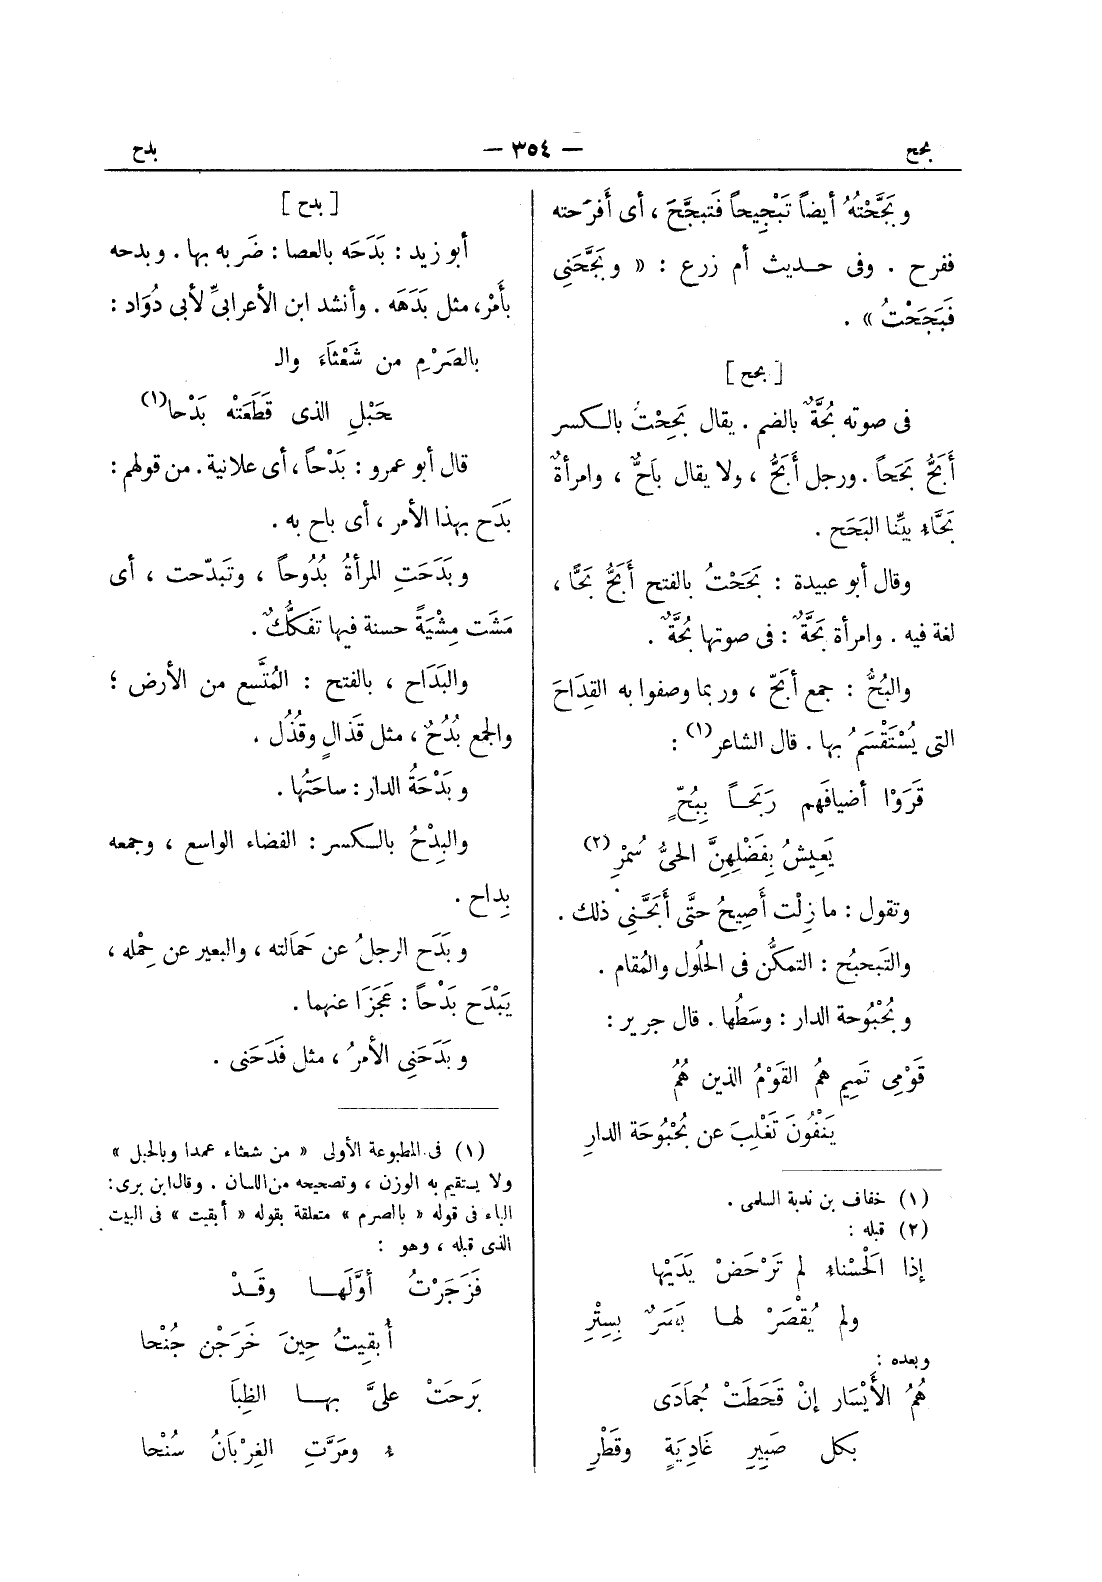 بجح
— ٣٥٤ —
بدح
وبَجَّحْتُهُ أيضاً تَبْجِيحاً فَتبجَّحَ ، أى أَفرَحته
ففرح . وفى حديث أم زرع : « وبَجَّحَنِى
فَبَجَحْتُ » .
[ بحح ]
فى صوته بُحَّةٌ بالضم . يقال بَحِحْتُ بالكسر
أَبَحُّ بَحَحاً . ورجل أَبَحُّ ، ولا يقال بَاحٌّ ، وامرأةٌ
بَحَّاءِ بيِّنا البَحَح .
وقال أبو عبيدة : بَحَحْتُ بالفتح أَبَحُّ بَحًّا ،
لغة فيه . وامرأة بَحَّةٌ : فى صوتها بُحَّةٌ .
والبُحُّ : جمع أبَحّ ، وربما وصفوا به القِدَاحَ
التى يُسْتَقْسَمُ بها . قال الشاعر(١) :
قَرَوْا أضيافَهم رَبَحاً بِبُحٍّ
يَعِيشُ بِفَضْلِهِنَّ الحىُّ سُمْرِ(٢)
وتقول : ما زِلْت أَصِيحُ حتَّى أَبَحَّنِى ذلك .
والتَبحبُح : التمكُّن فى الحلُول والمُقام .
وبُحْبُوحة الدار : وسَطُها . قال جرير :
قَوْمِى تَمِيم هُمُ القَوْمُ الذين هُمُ
يَنْفُونَ تَغْلِبَ عن بُحْبُوحَة الدارِ
(١) خفاف بن ندبة السلمى .
(٢) قبله :
إذا الحَسْناءِ لم تَرْحَضْ يَدَيْها
ولم يُقْصَرْ لها بَصَرٌ بِسِتْرِ
وبعده :
هُمُ الأَيْسَار إنْ قَحَطَتْ جُمَادَى
بكل صَبِيرِ غَادِيَةٍ وقَطْرِ
[ بدح ]
أبو زيد : بَدَحَه بالعصا : ضَربه بها . وبدحه
بأَمْر، مثل بَدَهَه . وأنشد ابن الأعرابىِّ لأبى دُوَاد :
بالصَرْمِ من شَعْثَاءَ والـ
حَبْلِ الذى قَطَعَتْه بَدْحا(١)
قال أبو عمرو : بَدْحاً ، أى علانية . من قولهم :
بَدَح بهذا الأمر ، أى باح به .
وبَدَحَتِ المرأةُ بُدُوحاً ، وتَبدّحت ، أى
مَشَت مِشْيَةً حسنة فيها تَفَكُّكٌ .
والبَدَاح ، بالفتح : المُتَّسع من الأرض ؛
والجمع بُدُحٌ ، مثل قَذالٍ وقُذُل .
وبَدْحَةُ الدار : ساحَتُها .
والبِدْحُ بالكسر : الفضاء الواسع ، وجمعه
بِداح .
وبَدَح الرجلُ عن حَمَالته ، والبعير عن حِمْله ،
يَبْدَح بَدْحاً : عَجَزَا عنهما .
وبَدَحَنِى الأمرُ ، مثل فَدَحَنى .
(١) فى المطبوعة الأولى « من شعثاء عمدا وبالحبل »
ولا يستقيم به الوزن ، وتصحيحه من اللسان . وقال ابن برى :
الباء فى قوله « بالصرم » متعلقة بقوله « أبقيت » فى البيت
الذى قبله ، وهو :
فَزَجَرْتُ أوَّلَها وقَدْ
أُبقِيتُ حِينَ خَرَجْن جُنْحا
بَرحَتْ علىَّ بها الظِبَا
ء ومَرَّتِ الغِرْبَانُ سُنْحا